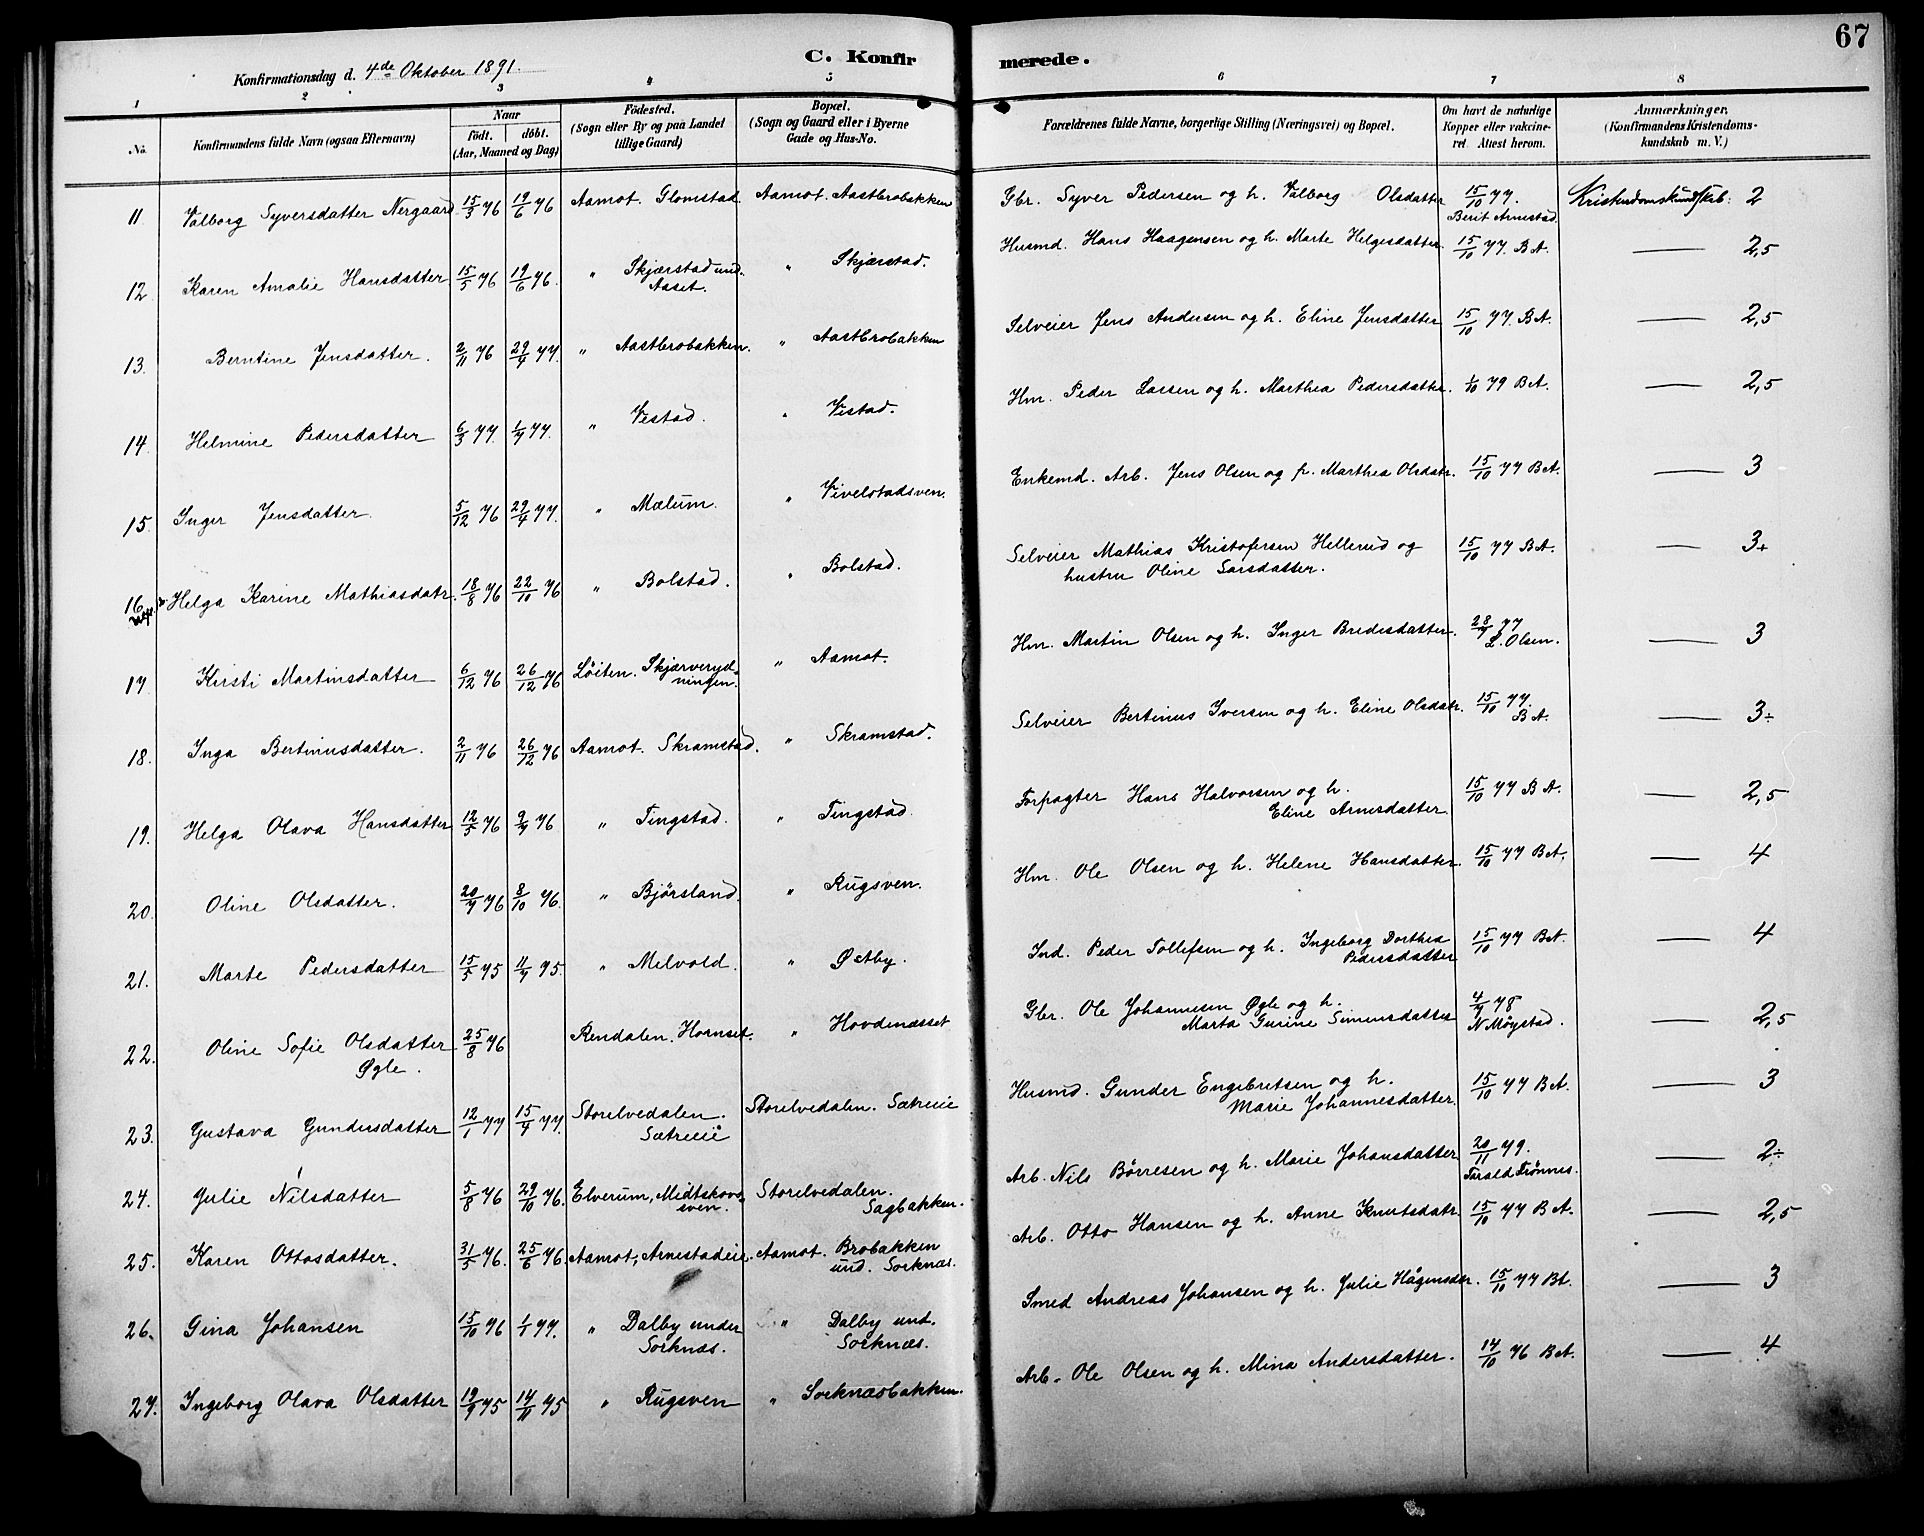 67
C. Konfirmerede.
Konfirmationsdag d. 4de Oktober 1891.
1 2 3 4 5 6 7 8
No.
Konfirmandens fulde Navn (ogsaa Efternavn)
Naar
födt. döbt.
(Aar, Maaned og Dag)
Födested.
(Sogn eller By og paa Landet
tillige Gaard)
Bopæl.
(Sogn og Gaard eller i Byerne
Gade og Hus-No.
Forældrenes fulde Navne, borgerlige Stilling (Næringsvei) og Bopæl.
Om havt de naturlige
Kopper eller vakcine-
ret. Attest herom.
Anmærkninger,
(Konfirmandens Kristendoms-
kundskab m. V.)
11 Valborg Syversdatter Nergaard 15/3 76 19/6 76 Aamot. Glomstad Aamot. Aastbrobakken Gbr. Syver Pedersen og h. Valborg Olsdatter 15/10 77. Kristendomskundskb: 2
Berit Arnestad
12. Karen Amalie Hansdatter 15/5 76 19/6 76. " Skjærstad und. " Skjærstad. Husmd. Hans Haagensen og h. Marte Helgesdatter. 15/10 77. B A. — 2,5
Aaset.
13. Berntine Jensdatter. 2/11 76 29/4 77. " Aastbrobakken. " Aastbrobakken Selveier Jens Andersen og h. Eline Jensdatter 15/10 77. B A. — 2,5
14. Helmine Pedersdatter 6/3 77. 1/7 77. " Vestad. " Vestad. Hm. Peder Larsen og h. Marthea Pedersdatter. 1/10 79 B A. — 2,5
15. Inger Jensdatter. 5/12 76 29/4 77. " Mælum. " Vivelstadsven. Enkemd. Arb. Jens Olsen og f. Marthea Olsdatr. 15/10 77 B A. — 3
16. Helga Karine Mathiasdatr. 18/8 76 22/10 76 " Bolstad. " Bolstad. Selveier Mathias Kristofersen Hellerud og 15/10 77 B A. — 3+
hustru Oline Larsdatter.
17. Kirsti Martinsdatter 6/12 76 26/12 76 Löiten. Skjærveryd- " Aamot. Hm. Martin Olsen og h. Inger Bredesdatter. 28/9 77 — 3
ningen. L. Olsen.
18. Inga Bertinusdatter. 2/11 76 26/12 76 Aamot. Skramstad. " Skramstad. Selveier Bertinus Iversen og h. Eline Olsdatr. 15/10 77. — 3÷
B A.
19. Helga Olava Hansdatter 12/5 76 9/7 76 " Tingstad. " Tingstad. Forpagter Hans Halvorsen og h. 15/10 77 B A. — 2,5
Eline Arnesdatter.
20. Oline Olsdatter. 20/7 76 8/10 76. " Bjørsland. " Rugsven. Hm. Ole Olsen og h. Helene Hansdatter. 15/10 77 B A. — 4
21. Marte Pedersdatter 15/5 75 11/7 75. " Melvold. " Østby. Ind. Peder Tollefsen og h. Ingeborg Dorthea 15/10 77 B A. — 4
Pedersdatter
22. Oline Sofie Olsdatter 25/8 76 Rendalen. Hornset. " Hovdenæsset Gbr. Ole Johannesen Øgle og h. 4/7 78 — 2,5
Øgle. Marta Gurine Simensdatter N Møystad.
23. Gustava Gundersdatter 12/1 77 15/4 77. Storelvedalen. Storelvedalen. Sætreeie Husmd. Gunder Engebretsen og h. 15/10 77 B A. — 3
Sætreeie Marie Johannesdatter.
24. Julie Nilsdatter 5/8 76 29/10 76. Elverum, Midtskovs- Storelvedalen. Arb. Nils Børresen og h. Marie Johansdatter 20/11 79. — 2÷
sven. Sagbakken. Tarald Trønnes.
25. Karen Ottosdatter. 31/5 76. 25/6 76. Aamot, Arnestadeie. Aamot. Brobakken Arb. Otto Hansen og h. Anne Knutsdatr. 15/10 77 B A. — 2,5
und. Sorknæs.
26. Gina Johansen 15/10 76 1/1 77. " Dalby under " Dalby und. Smed Andreas Johansen og h. Julie Hågensdtr. 15/10 77 B A. — 3
Sorknæs. Sorknæs.
27. Ingeborg Olava Olsdatter 19/9 75 14/11 75 " Rugsven " Sorknæsbakken. Arb. Ole Olsen og h. Mina Andersdatter. 14/10 76 B A. — 4